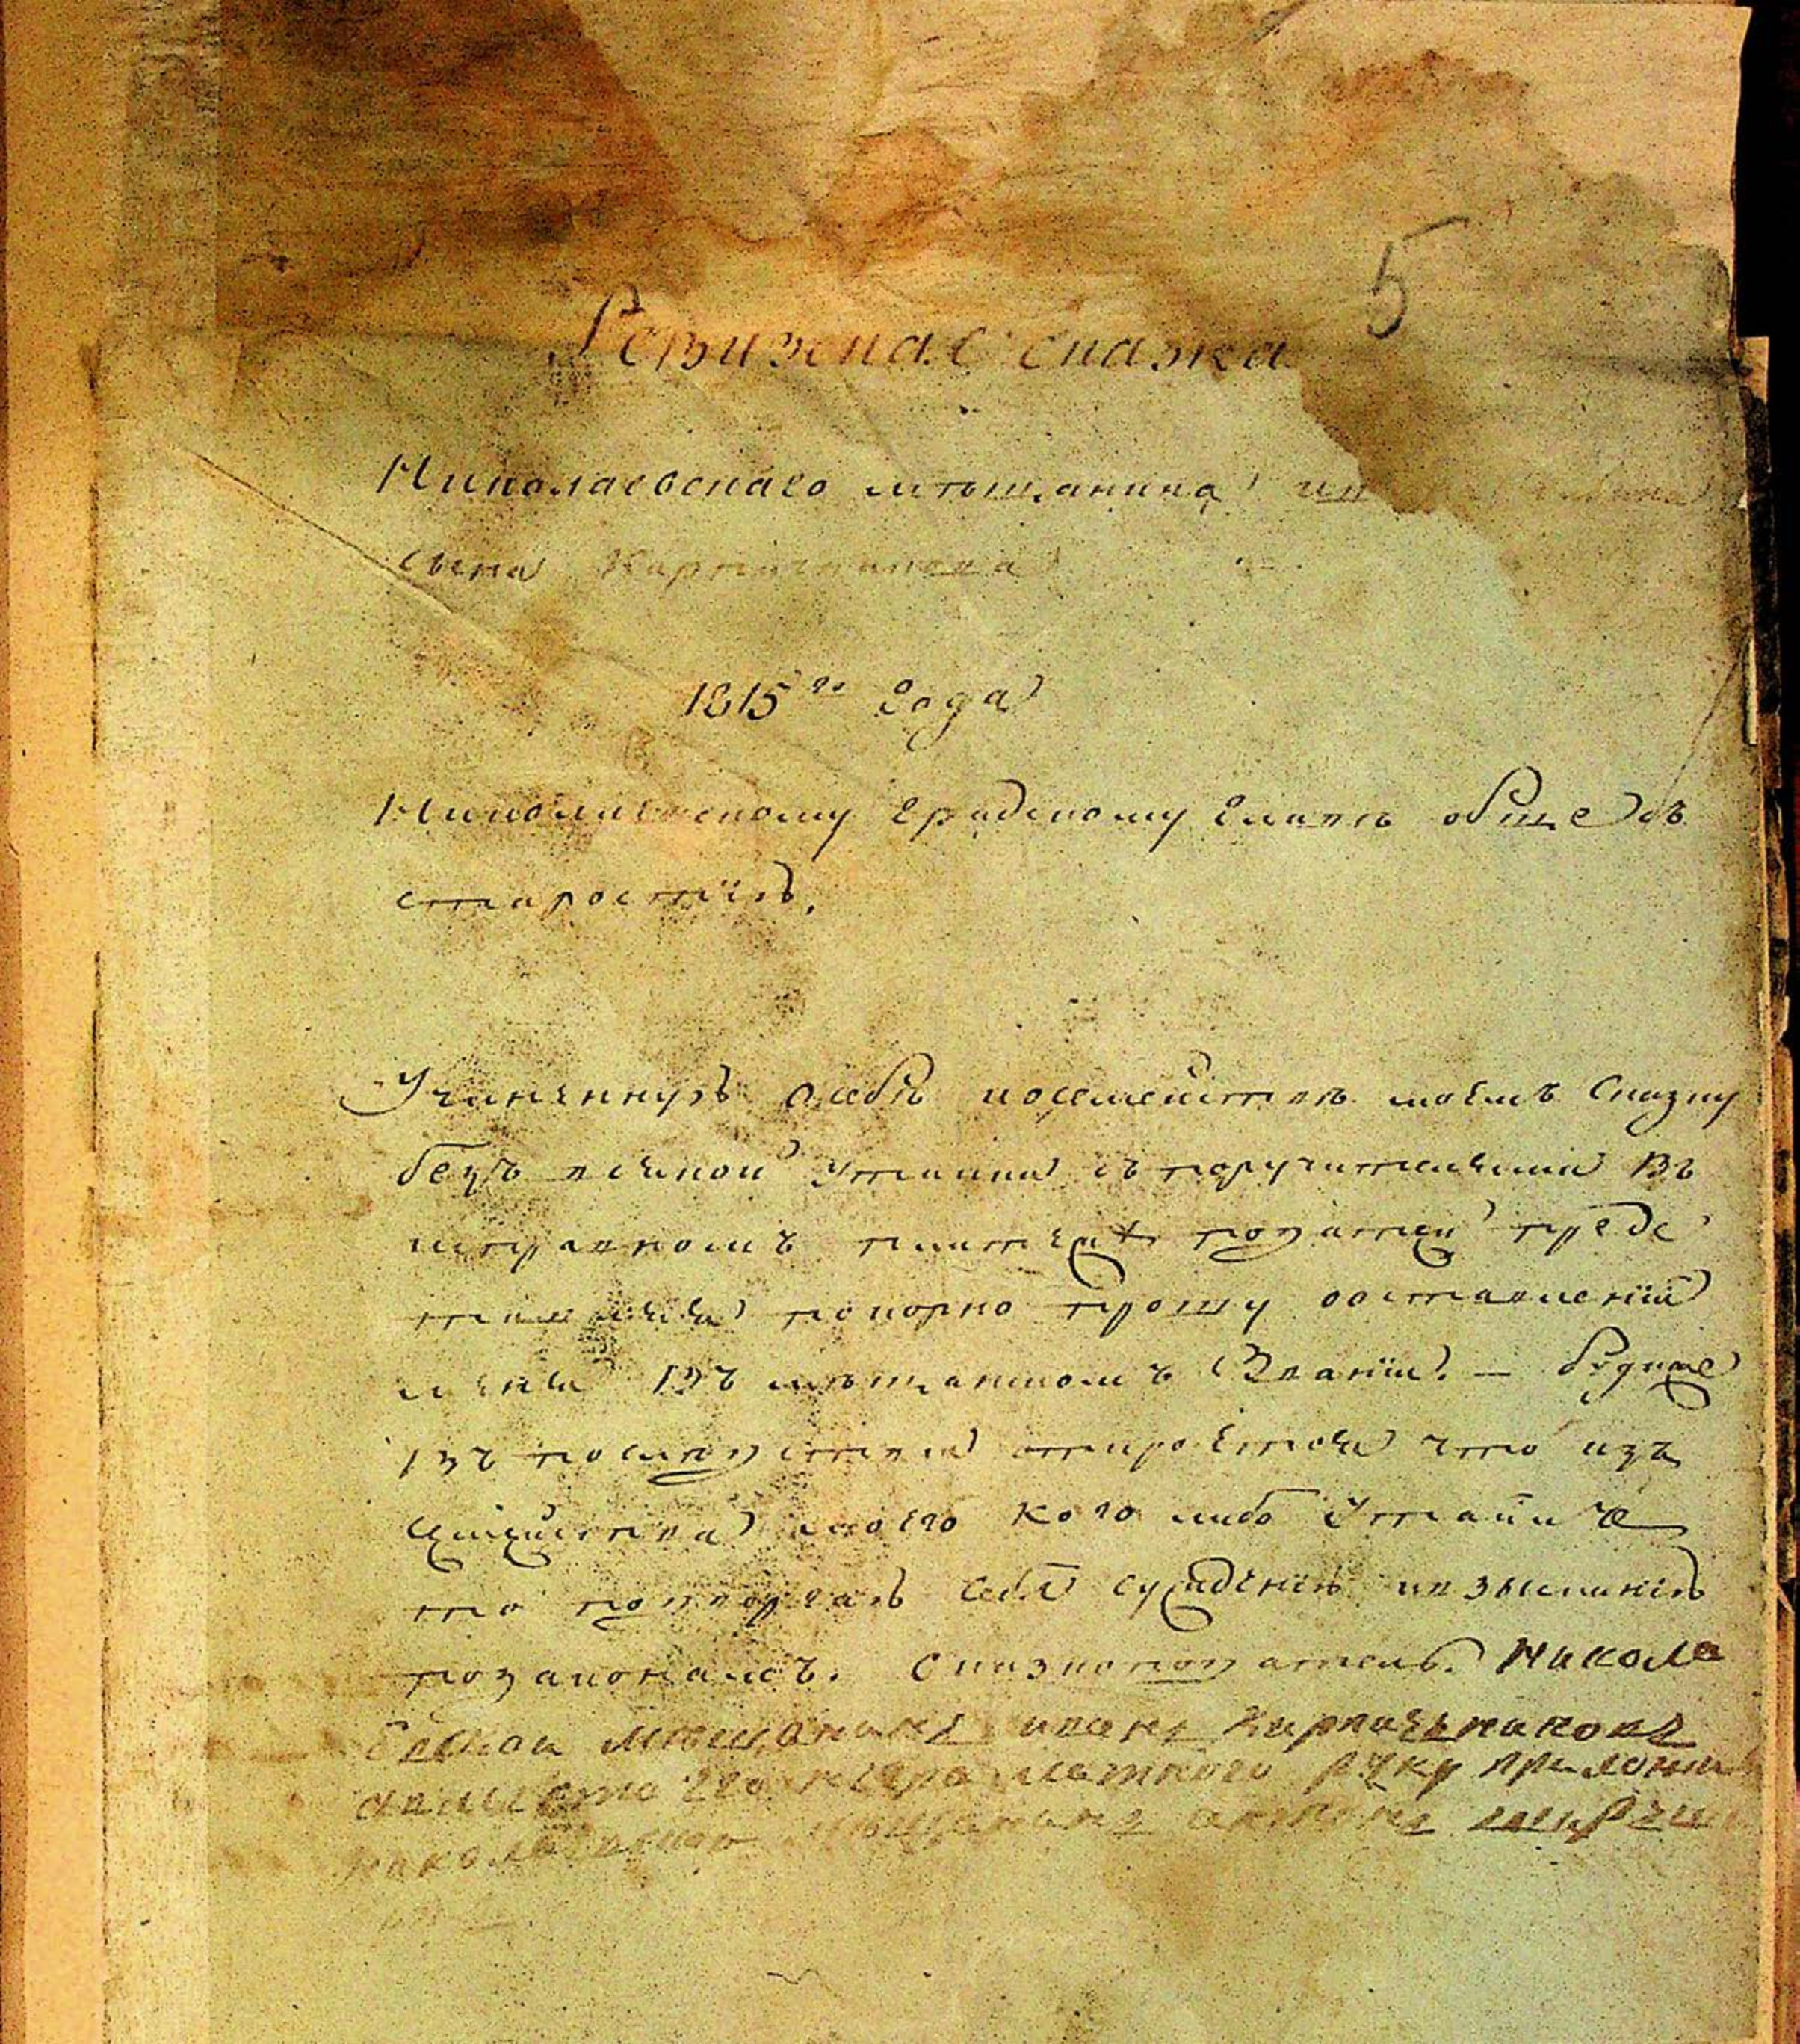 5
Ревизская сказка
Николаевскаго мѣщанина
сына Кирпичникова
1815го года
Николаевскому градскому главѣ обще съ
старостою,
Учиненную о себѣ и о семействѣ моемъ сказку
безъ всякой утайки съ поручителями въ
исправномъ платежѣ податей предс
тавляя покорно прошу о оставленіи
меня въ мѣщанскомъ званіи. — буде же
въ послѣдствіи откроется что изъ
семейства моего кого либо утаилъ
то подвергаю себя сужденію и взысканію
по законамъ. Сказкоподатель. Никола
евской мѣщанинъ иванъ Кирпичниковъ
а вместо его неграмотного руку приложилъ
николаевской мѣщанинъ антонъ